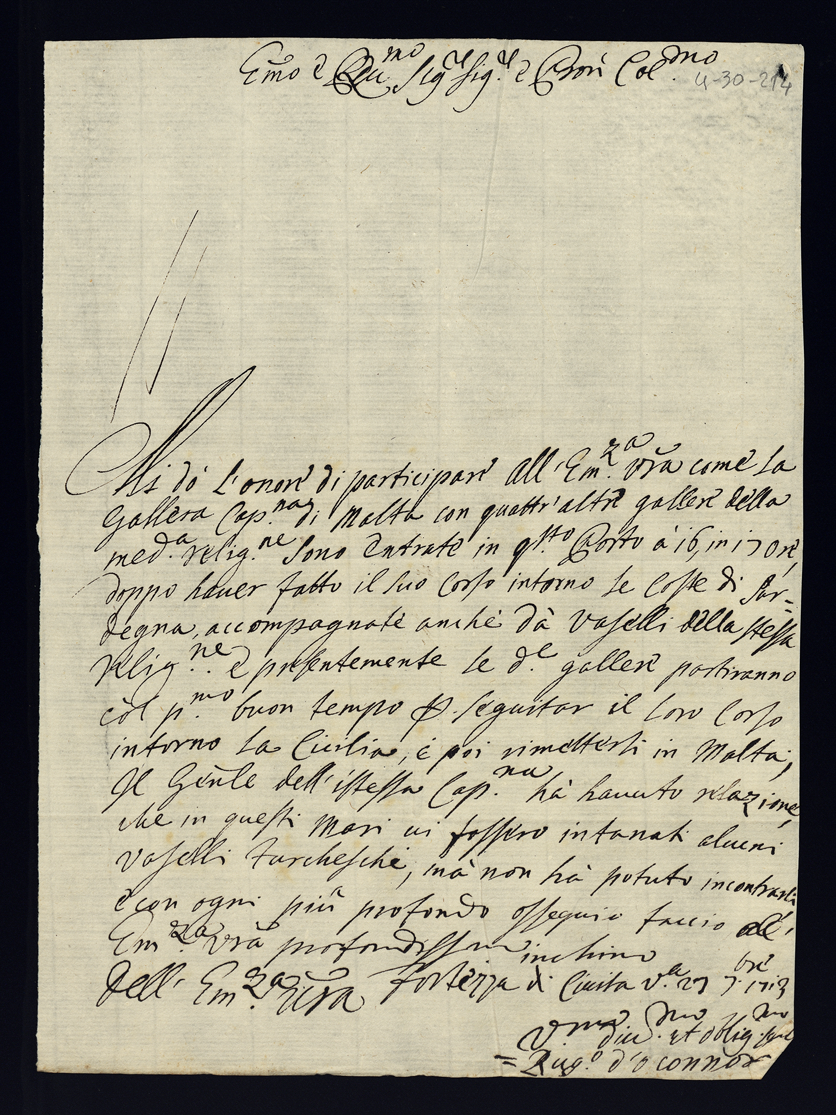 Em̃o e Reu.mo Sig.re Sig.re e Pr̃on Col.mo
4-30-214
Mi do' l'onore di participare all'Em.za Vr̃a come la
Gallera Cap.na di Malta con quattr'altre gallere della
med.a relig.ne sono entrate in q.sto Porto à 16, in 17 ore,
doppo hauer fatto il suo Corso intorno le coste di Sar-
degna, accompagnate anche dà Vaselli della stessa
Relig.ne e presentemente le d.e gallere partiranno
col p.mo buon tempo p. seguitar il loro Corso
intorno la Cicilia, e poi rimettersi in Malta;
Il Gen̄le dell'istessa Cap.na hà hauuto relazione,
che in questi Mari ui fossero intanati alcuni
Vaselli Turcheschi, mà non hà potuto incontrarli
e con ogni più profondo ossequio faccio all'
Em.za Vr̃a profondissm inchino
Dell' Em.za Vr̃a Fortezza di Ciuita V.a 27 7.bre 1713
V.mo diu.mo et oblig.mo
= Rug.o d'o connor